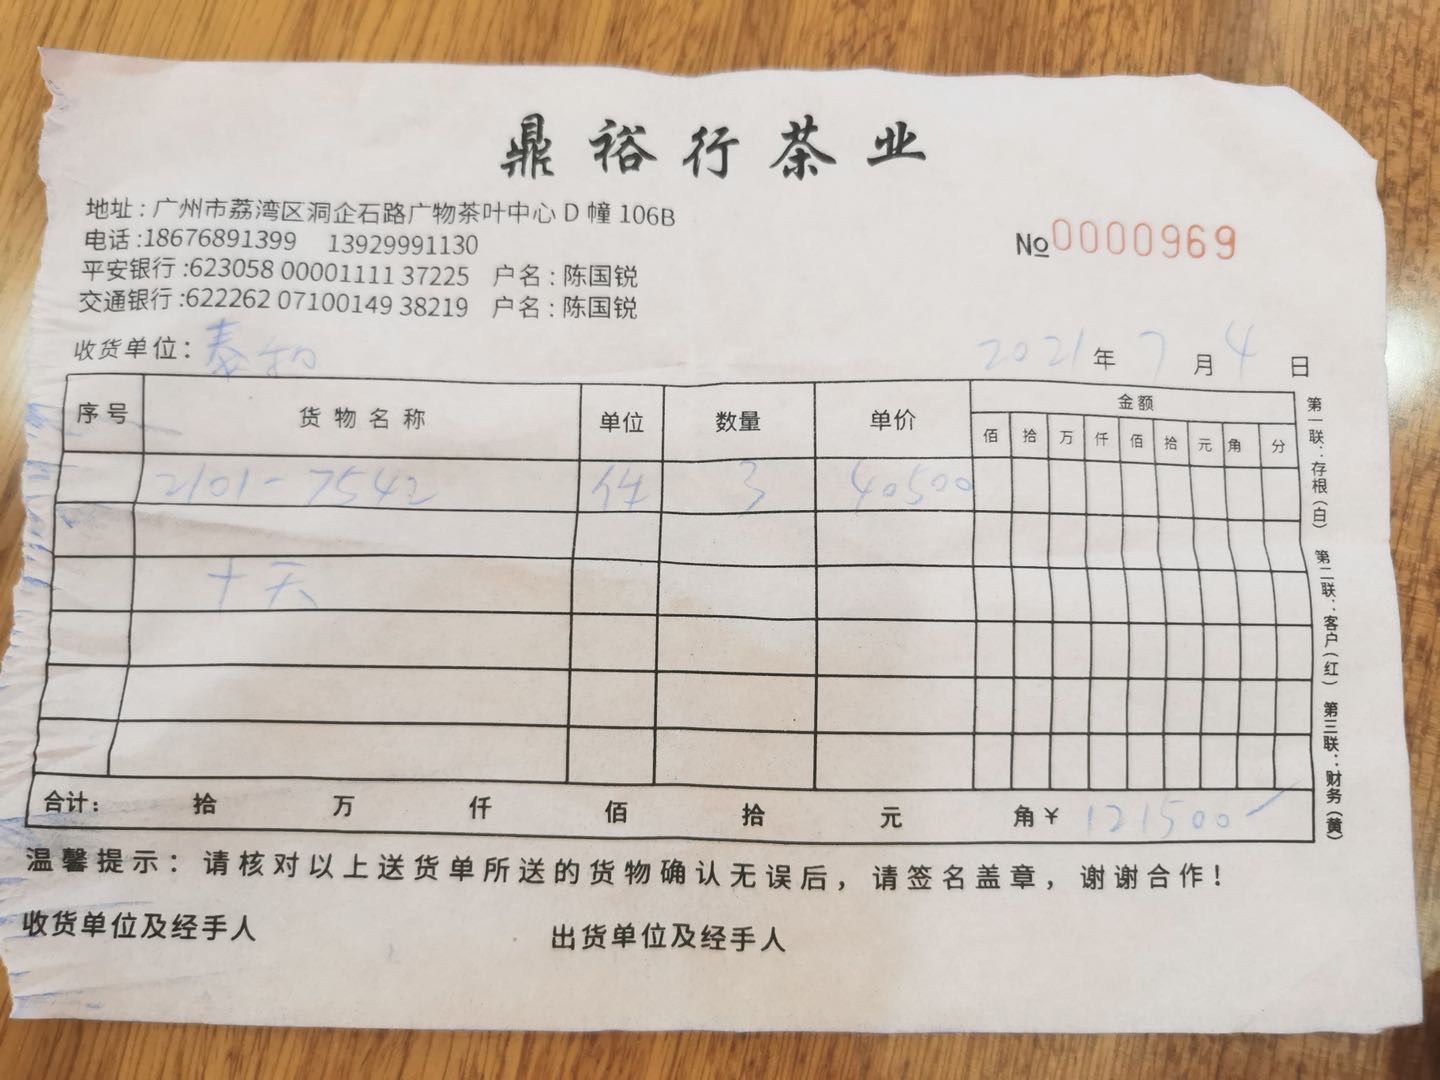 鼎裕行茶业
地址:广州市荔湾区洞企石路广物茶叶中心D幢106B
电话:18676891399 13929991130
平安银行:623058 00001111 37225 户名:陈国锐
交通银行:622262 07100149 38219 户名:陈国锐
№0000969
收货单位: 泰和
2021年7月4日
序号 货物名称 单位 数量 单价 金额
佰 拾 万 仟 佰 拾 元 角 分
2101-7542 件 3 40500
十天
合计: 拾 万 仟 佰 拾 元 角 ¥ 121500
温馨提示:请核对以上送货单所送的货物确认无误后,请签名盖章,谢谢合作!
收货单位及经手人 出货单位及经手人
第一联:存根(白) 第二联:客户(红) 第三联:财务(黄)